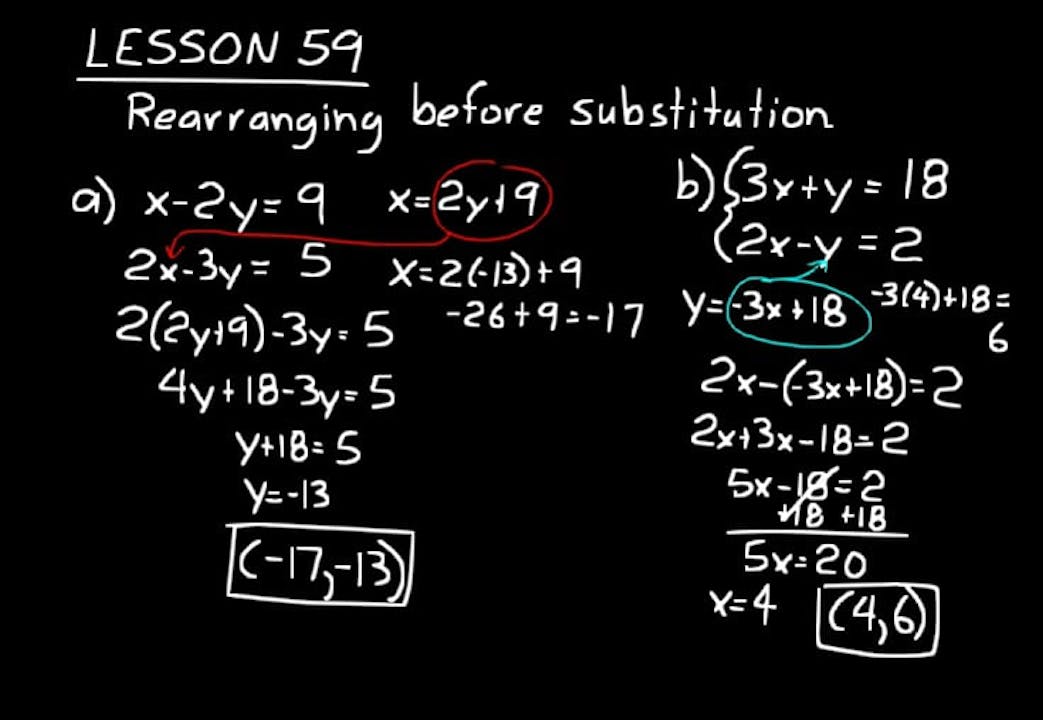 LESSON 59
Rearranging before substitution
a) x-2y=9 x=2y+9
2x-3y=5 x=2(-13)+9
2(2y+9)-3y=5 -26+9=-17
4y+18-3y=5
y+18=5
y=-13
(-17,-13)
b) {3x+y=18
2x-y=2
y=-3x+18 -3(4)+18=
6
2x-(-3x+18)=2
2x+3x-18=2
5x-18=2
+18 +18
5x=20
x=4 (4,6)